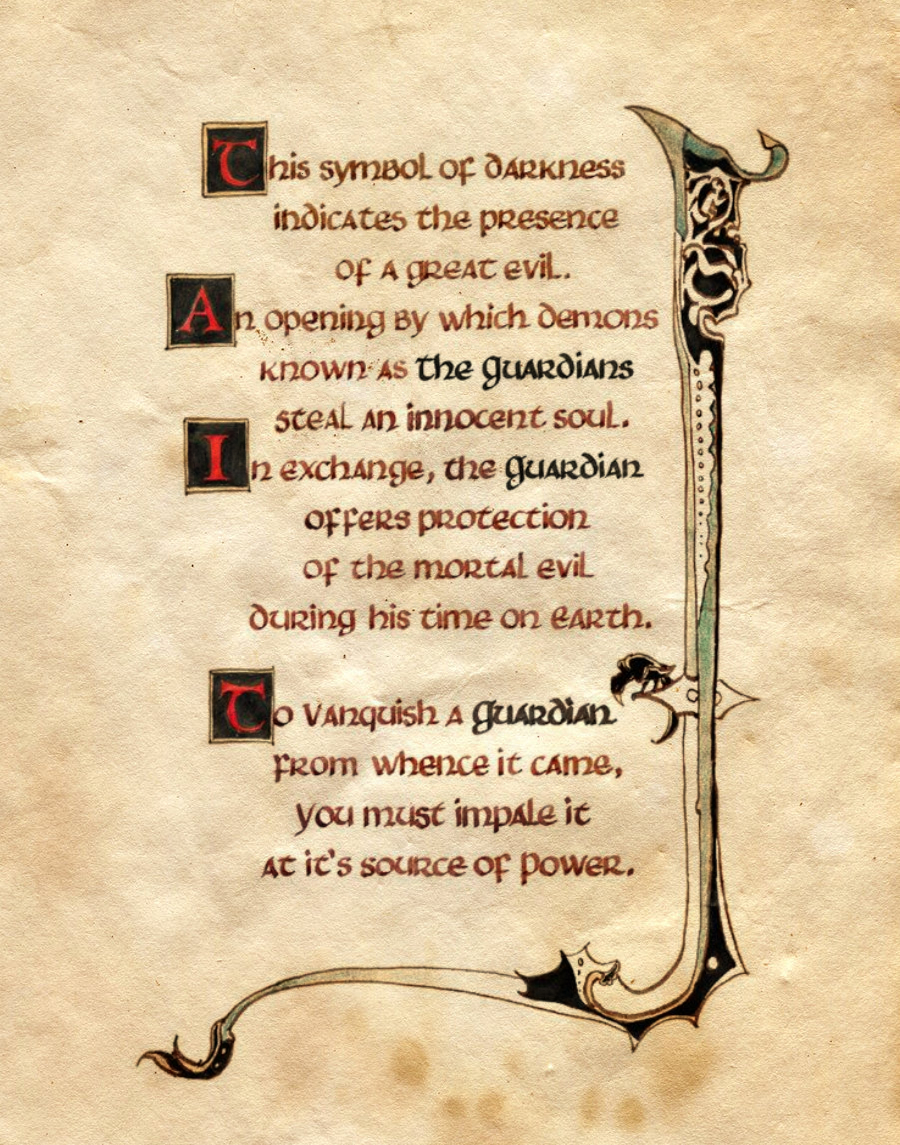 This symbol of darkness
indicates the presence
of a great evil.
An opening by which demons
known as the Guardians
steal an innocent soul.
In exchange, the Guardian
offers protection
of the mortal evil
during his time on Earth.
To Vanquish a Guardian
from whence it came,
you must impale it
at it's source of Power.